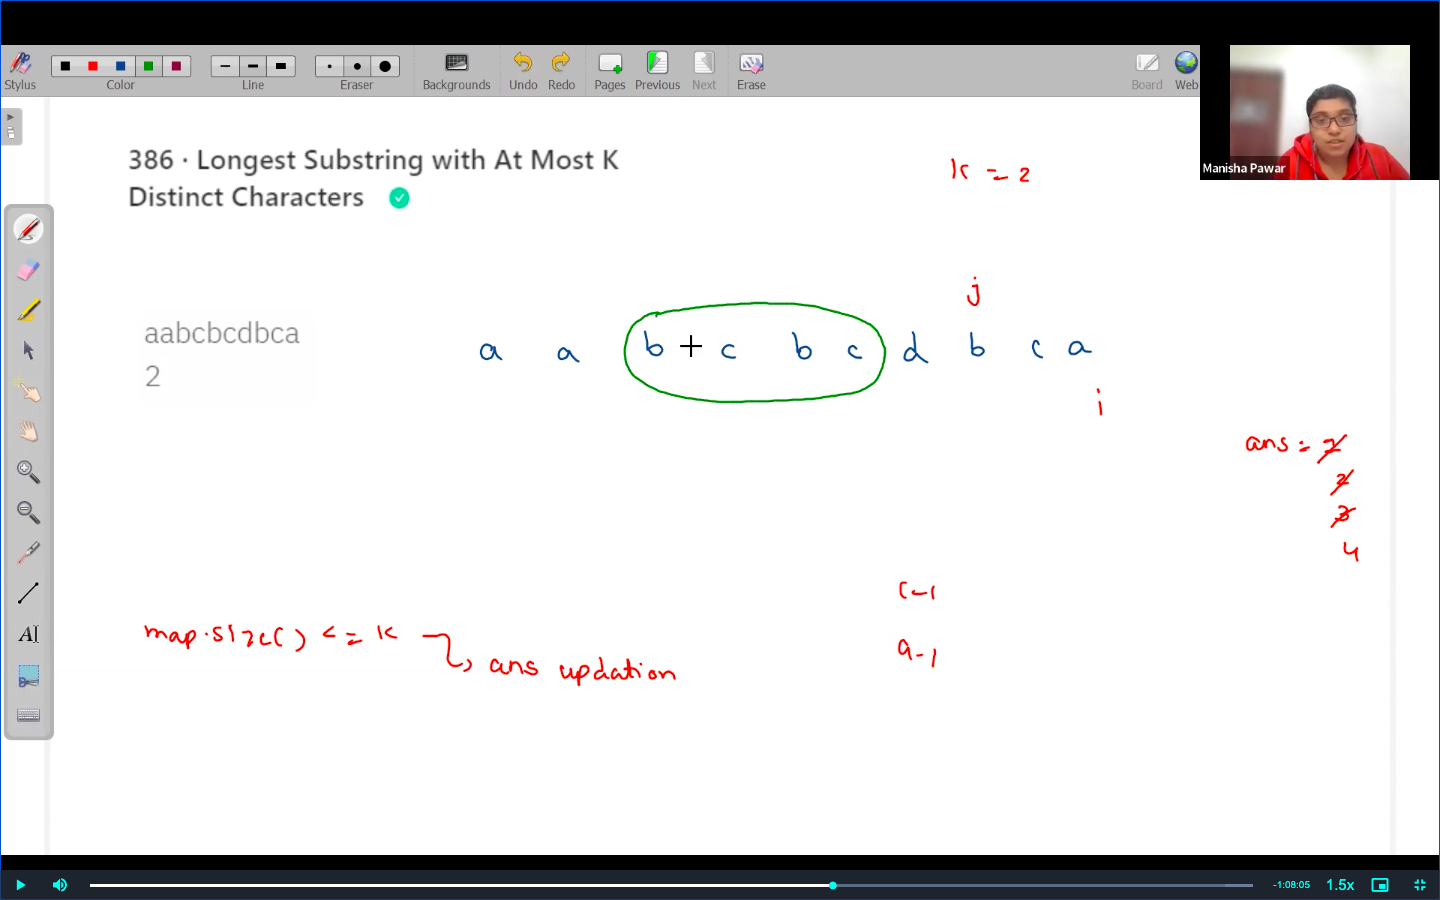 Stylus
Color
Line
Eraser
Backgrounds
Undo
Redo
Pages
Previous
Next
Erase
Board
Web
Manisha Pawar
386 · Longest Substring with At Most K
Distinct Characters
k = 2
j
aabcbcdbca
2
a a b c b c d b c a
i
ans = 1
2
3
4
c-1
a-1
map.size() <= k
ans updation
AI
-1:08:05
1.5x